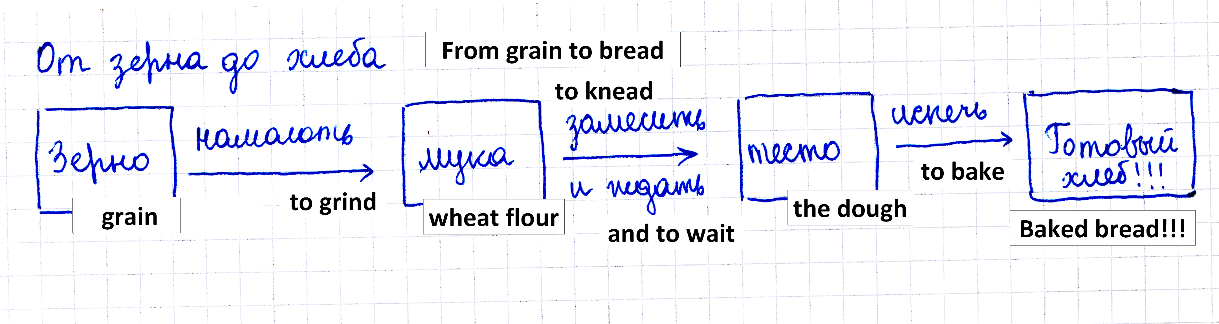 От зерна до хлеба
From grain to bread
Зерно
grain
намолоть
to grind
мука
wheat flour
to knead
замесить
и ждать
and to wait
тесто
the dough
испечь
to bake
Готовый
хлеб!!!
Baked bread!!!